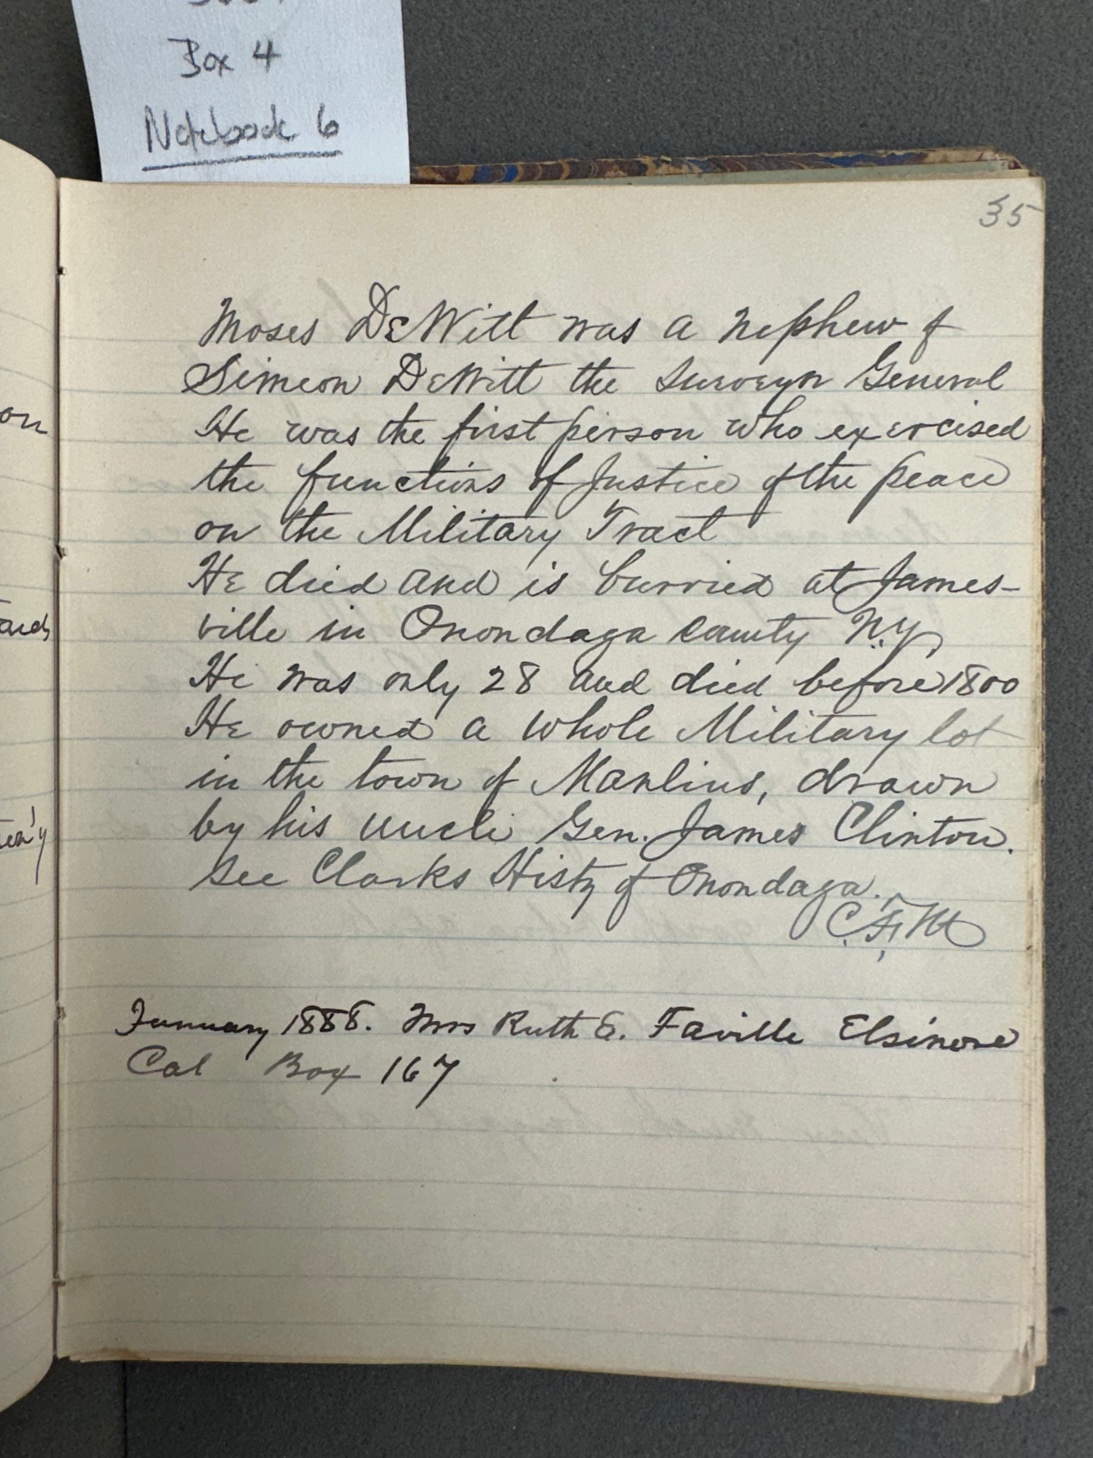 Box 4
Notebook 6
35
Moses DeWitt was a Nephew of
Simeon DeWitt the Surveyor General
He was the first person who exercised
the functions of Justice of the peace
on the Military Tract
He died and is burried at James-
ville in Onondaga county N.Y.
He was only 28 and died before 1800
He owned a whole Military lot
in the town of Manlius, drawn
by his uncle Gen. James Clinton.
See Clarks Histy of Onondaga.
C.F.M
January 1888. Mrs Ruth E. Faville Elsinore
Cal Box 167
on